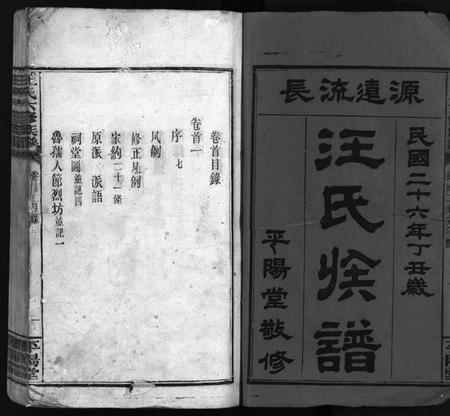 源遠流長
民國二十六年丁丑歲
汪氏族譜
平陽堂敬修
平陽堂
卷首目錄
卷首一
序 七
凡例
修正凡例
家約二十一條
原派 派語
祠堂圖並記四
魯孺人節烈坊並記一
一
平陽堂